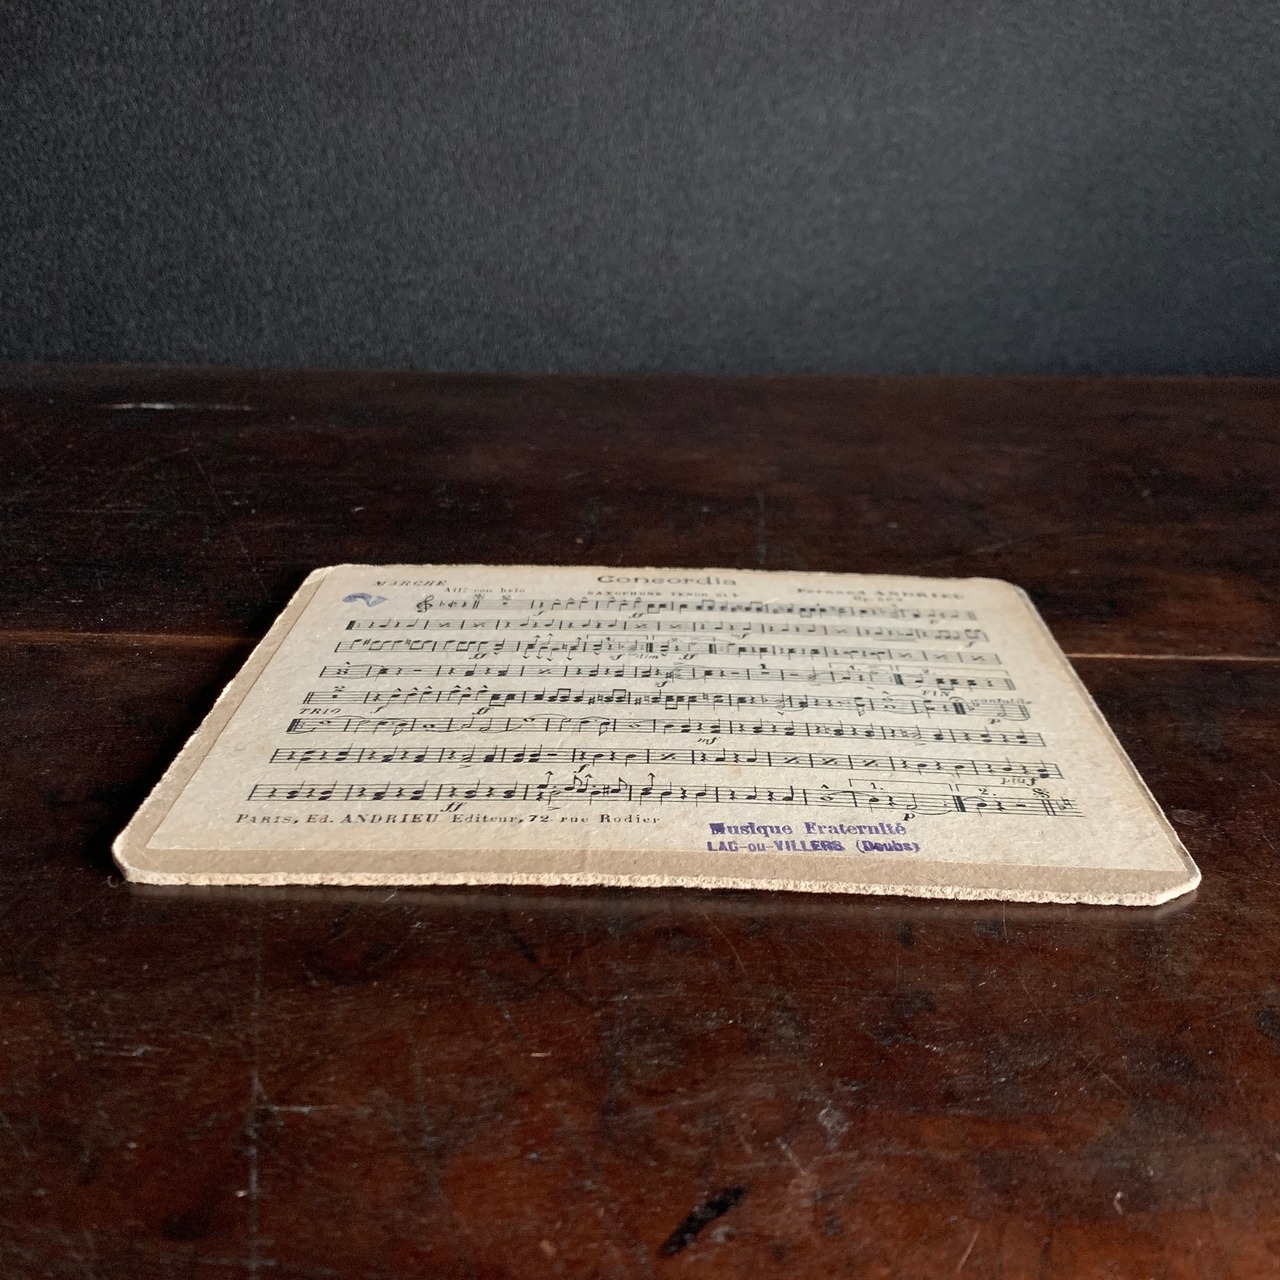 MARCHE
Concordia
All? con brio
SAXOPHONE TENOR SI b
Fernand ANDRIEU
Op.
2
f
ff
p
mf
f
ff
ff
f
1.
2.
FIN
f
ff
p
TRIO
mf
f
plus f
ff
1.
2.
p
PARIS, Ed. ANDRIEU Editeur, 72 rue Rodier
Musique Fraternité
LAC-ou-VILLERS (Doubs)